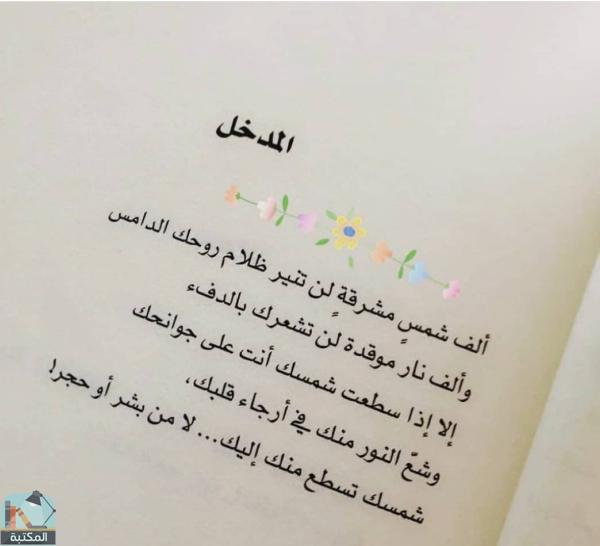 المدخل
ألف شمسٍ مشرقةٍ لن تنير ظلام روحك الدامس
وألف نار موقدة لن تشعرك بالدفء
إلا إذا سطعت شمسك أنت على جوانحك
وشعّ النور منك في أرجاء قلبك،
شمسك تسطع منك إليك... لا من بشر أو حجر!
المكتبة